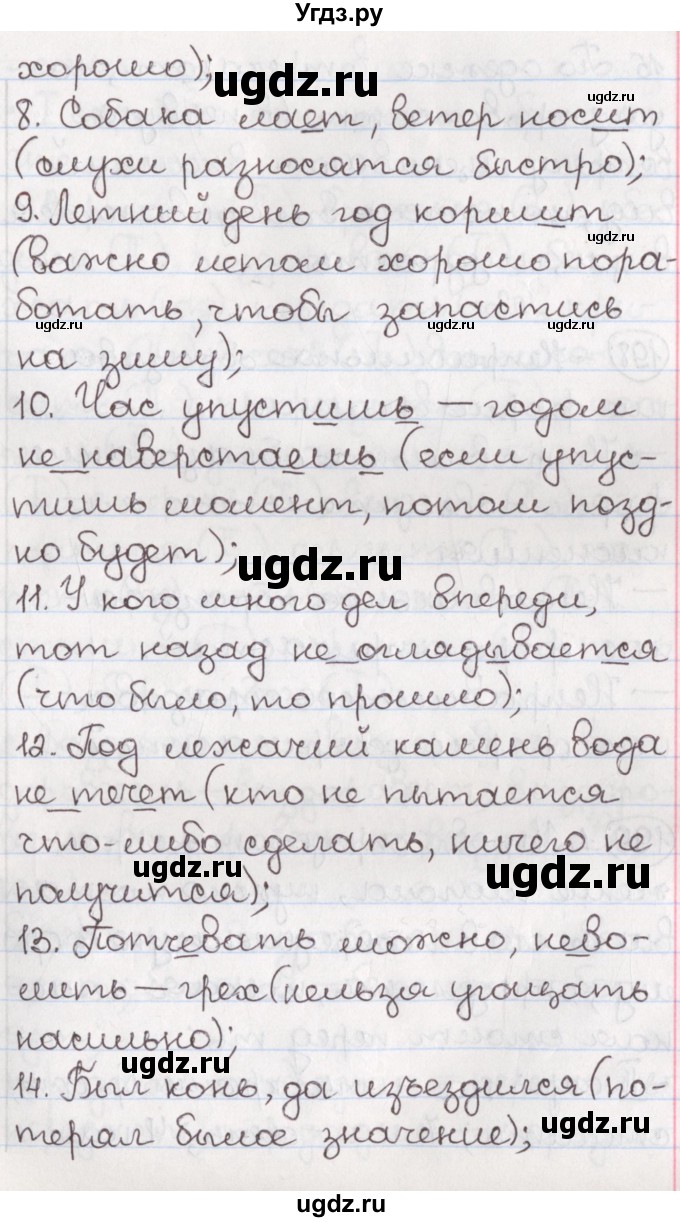 Угдз.ру
хорошо);
8. Собака лает, ветер носит
(слухи разносятся быстро);
9. Летний день год кормит
(важно летом хорошо пора-
ботать, чтобы запастись
на зиму);
10. Час упустишь — годом
не наверстаешь (если упус-
тишь момент, потом позд-
но будет);
11. У кого много дел впереди,
тот назад не оглядывается
(что было, то прошло);
12. Под лежачий камень вода
не течет (кто не пытается
что-либо сделать, ничего не
получится);
13. Потчевать можно, нево-
лить — грех (нельзя угощать
насильно);
14. Был конь, да изъездился (по-
терял былое значение);
ugdz.ru